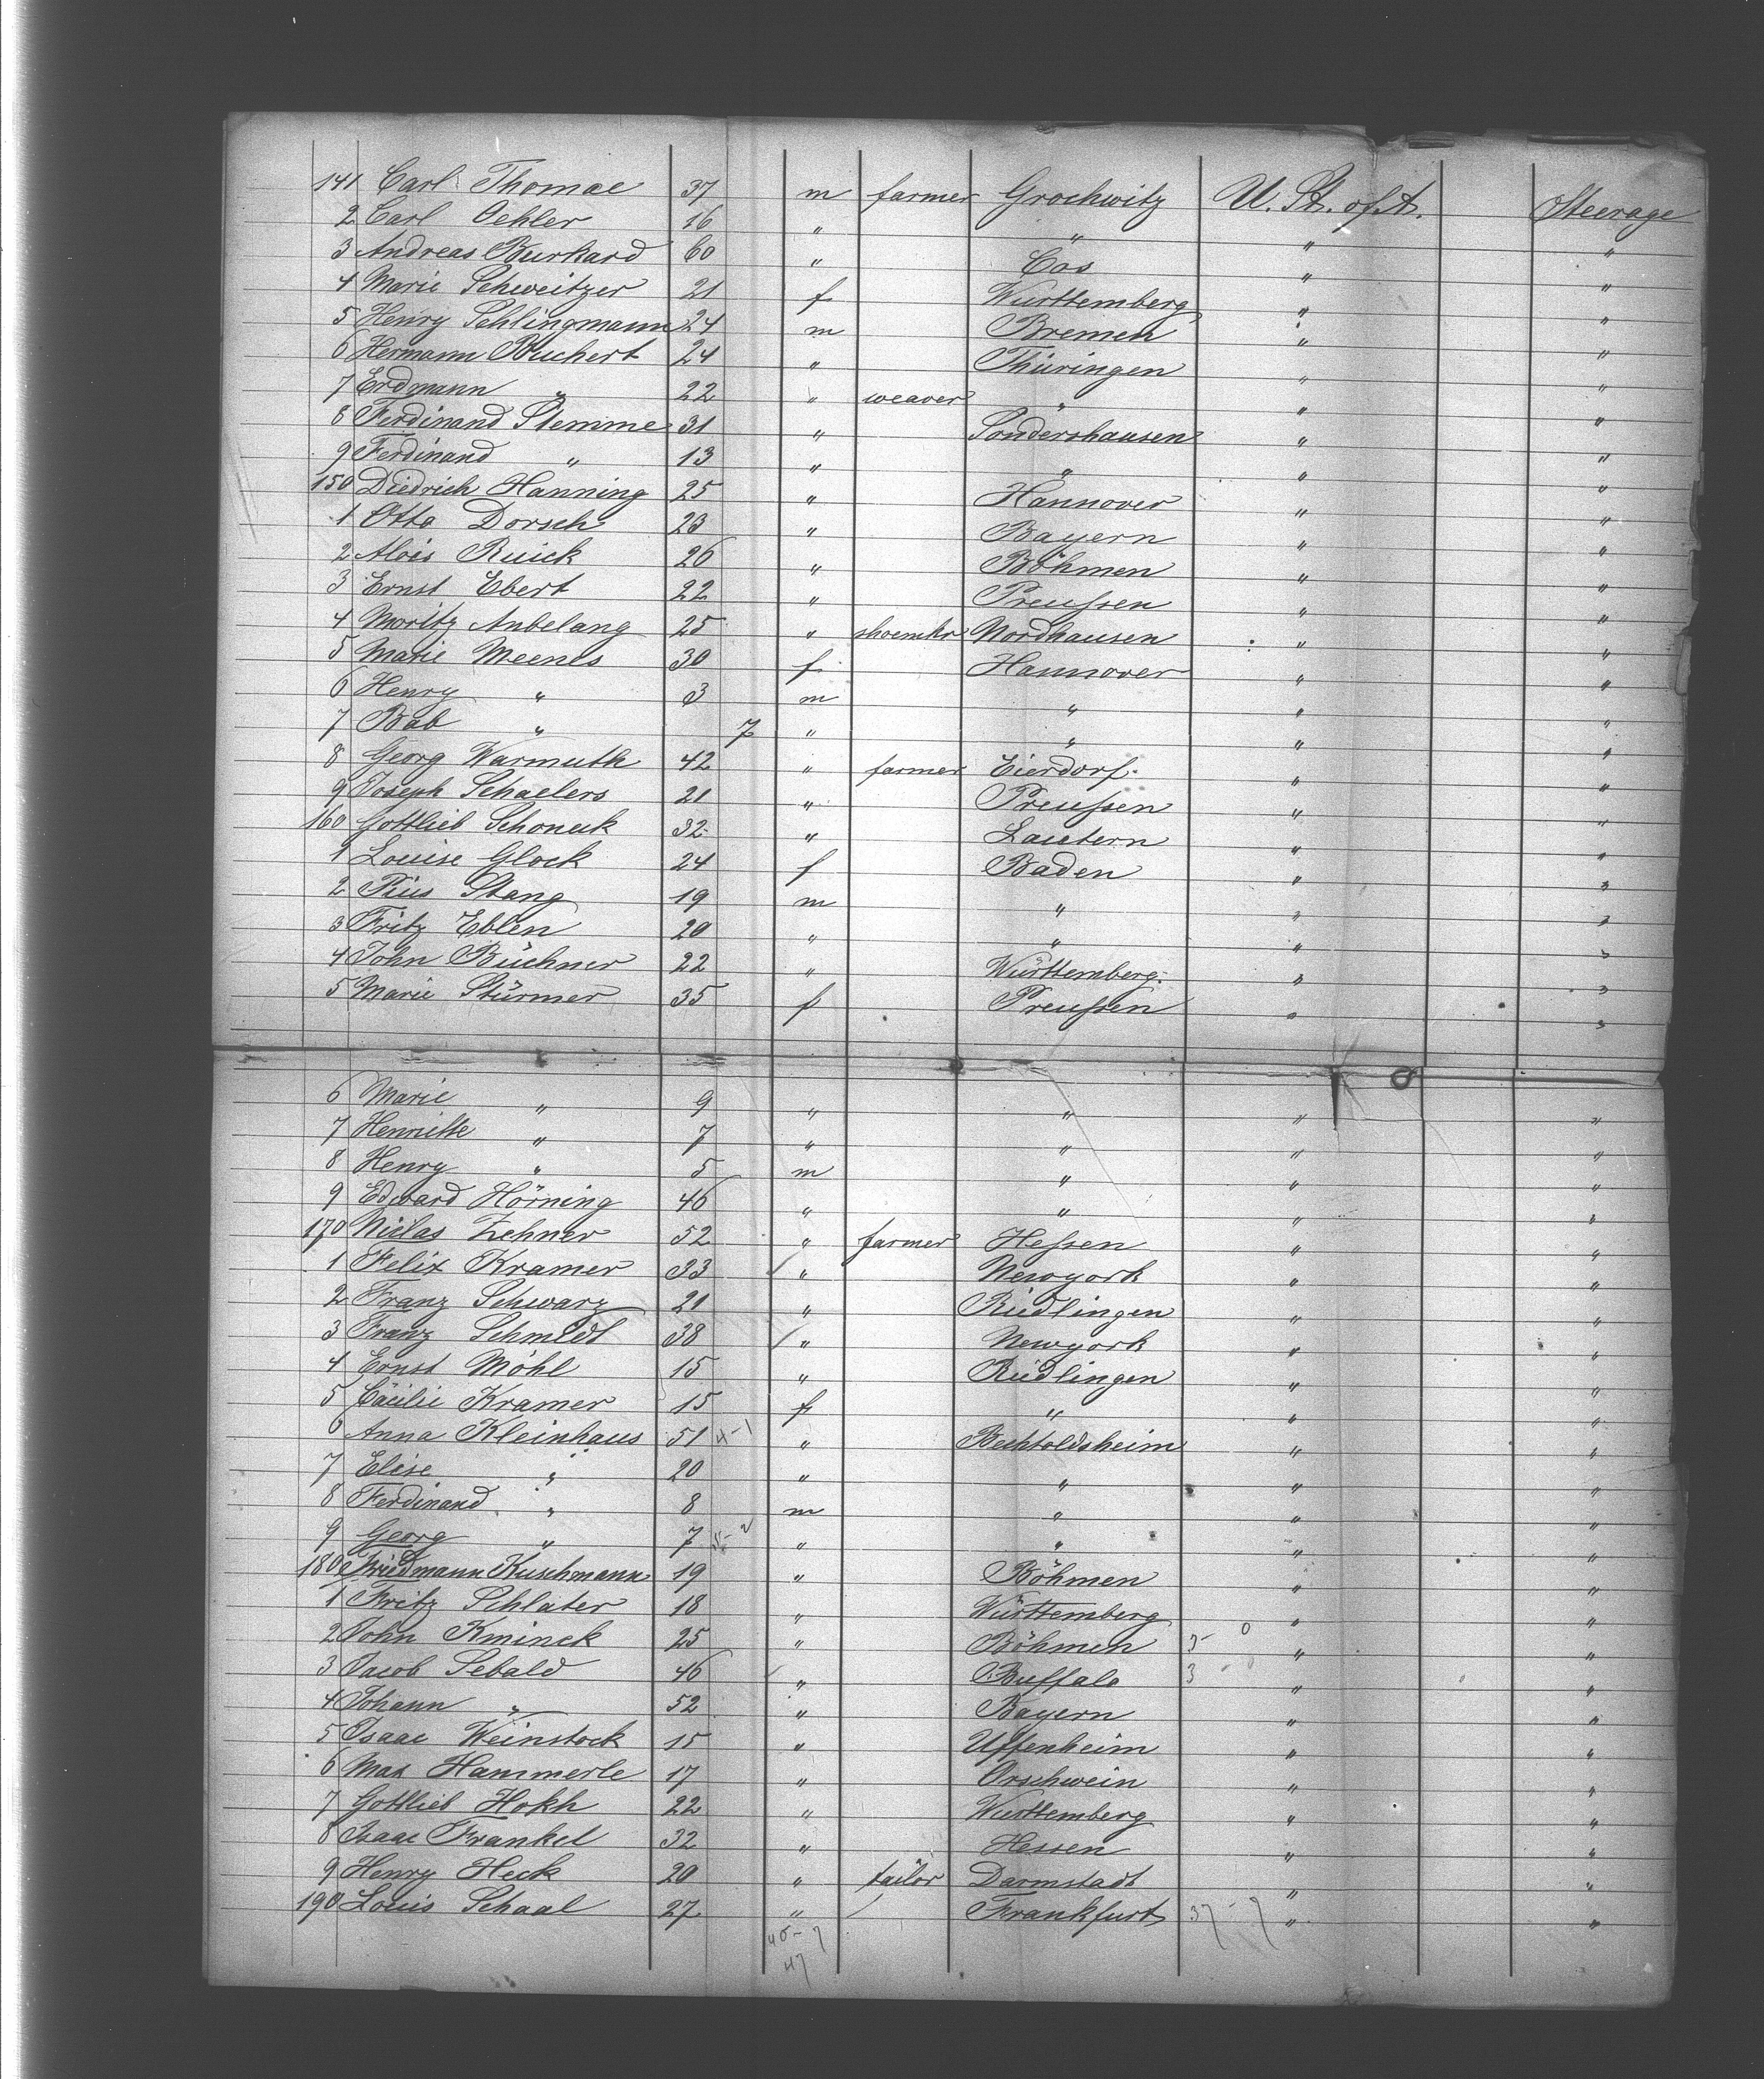 141 Carl Thomae 37 m farmer Grochwitz U. St. of A. Steerage
2 Carl Oehler 16 " " " "
3 Andreas Burkard 60 " Cos " "
4 Marie Schweitzer 21 f Württemberg " "
5 Henry Schlingmann 24 m Bremen " "
6 Hermann Buchert 24 " Thüringen " "
7 Erdmann " 22 " weaver " " "
8 Ferdinand Slemme 31 " Sondershausen " "
9 Ferdinand " 13 " " " "
150 Diedrich Hanning 25 " Hannover " "
1 Otto Dorsch 23 " Bayern " "
2 Alois Ruick 26 " Böhmen " "
3 Ernst Ebert 22 " Preußen " "
4 Moritz Anbelang 25 " shoemkr Nordhausen " "
5 Marie Meenls 30 f Hannover " "
6 Henry " 3 m " " "
7 Bab " 7 " " " "
8 Georg Warmuth 42 " farmer Eierdorf " "
9 Joseph Schaelers 21 " Preußen " "
160 Gottlieb Schoneck 32 " Lautern " "
1 Louise Glock 24 f Baden " "
2 Pius Stang 19 m " " "
3 Fritz Eblen 20 " " " "
4 John Büchner 22 " Württemberg " "
5 Marie Stürmer 35 f Preußen " "
6 Marie " 9 " " " "
7 Henriette " 7 " " " "
8 Henry " 5 m " " "
9 Edward Hörning 46 " " " "
170 Niclas Zehner 52 " farmer Heßen " "
1 Felix Kramer 33 " Newyork " "
2 Franz Schwarz 21 " Riedlingen " "
3 Franz Schmidt 38 " Newyork " "
4 Ernst Möhl 15 " Riedlingen " "
5 Cäcilie Kramer 15 f " " "
6 Anna Kleinhaus 51 4-1 " Bechtoldsheim " "
7 Elise " 20 " " " "
8 Ferdinand " 8 m " " "
9 Georg " 7 " " " "
180 Friedmann Kuschmann 19 " Böhmen " "
1 Fritz Schlater 18 " Württemberg " "
2 John Kminek 25 " Böhmen " "
3 Jacob Sebald 46 " Buffalo 3 " "
4 Johann " 52 " Bayern " "
5 Isaac Weinstock 15 " Uffenheim " "
6 Max Hammerle 17 " Orschwein " "
7 Gottlieb Hokh 22 " Württemberg " "
8 Isaac Frankel 32 " Hessen " "
9 Henry Heck 20 " tailor Darmstadt " "
190 Louis Schaal 27 " Frankfurt 37-7 " "
47